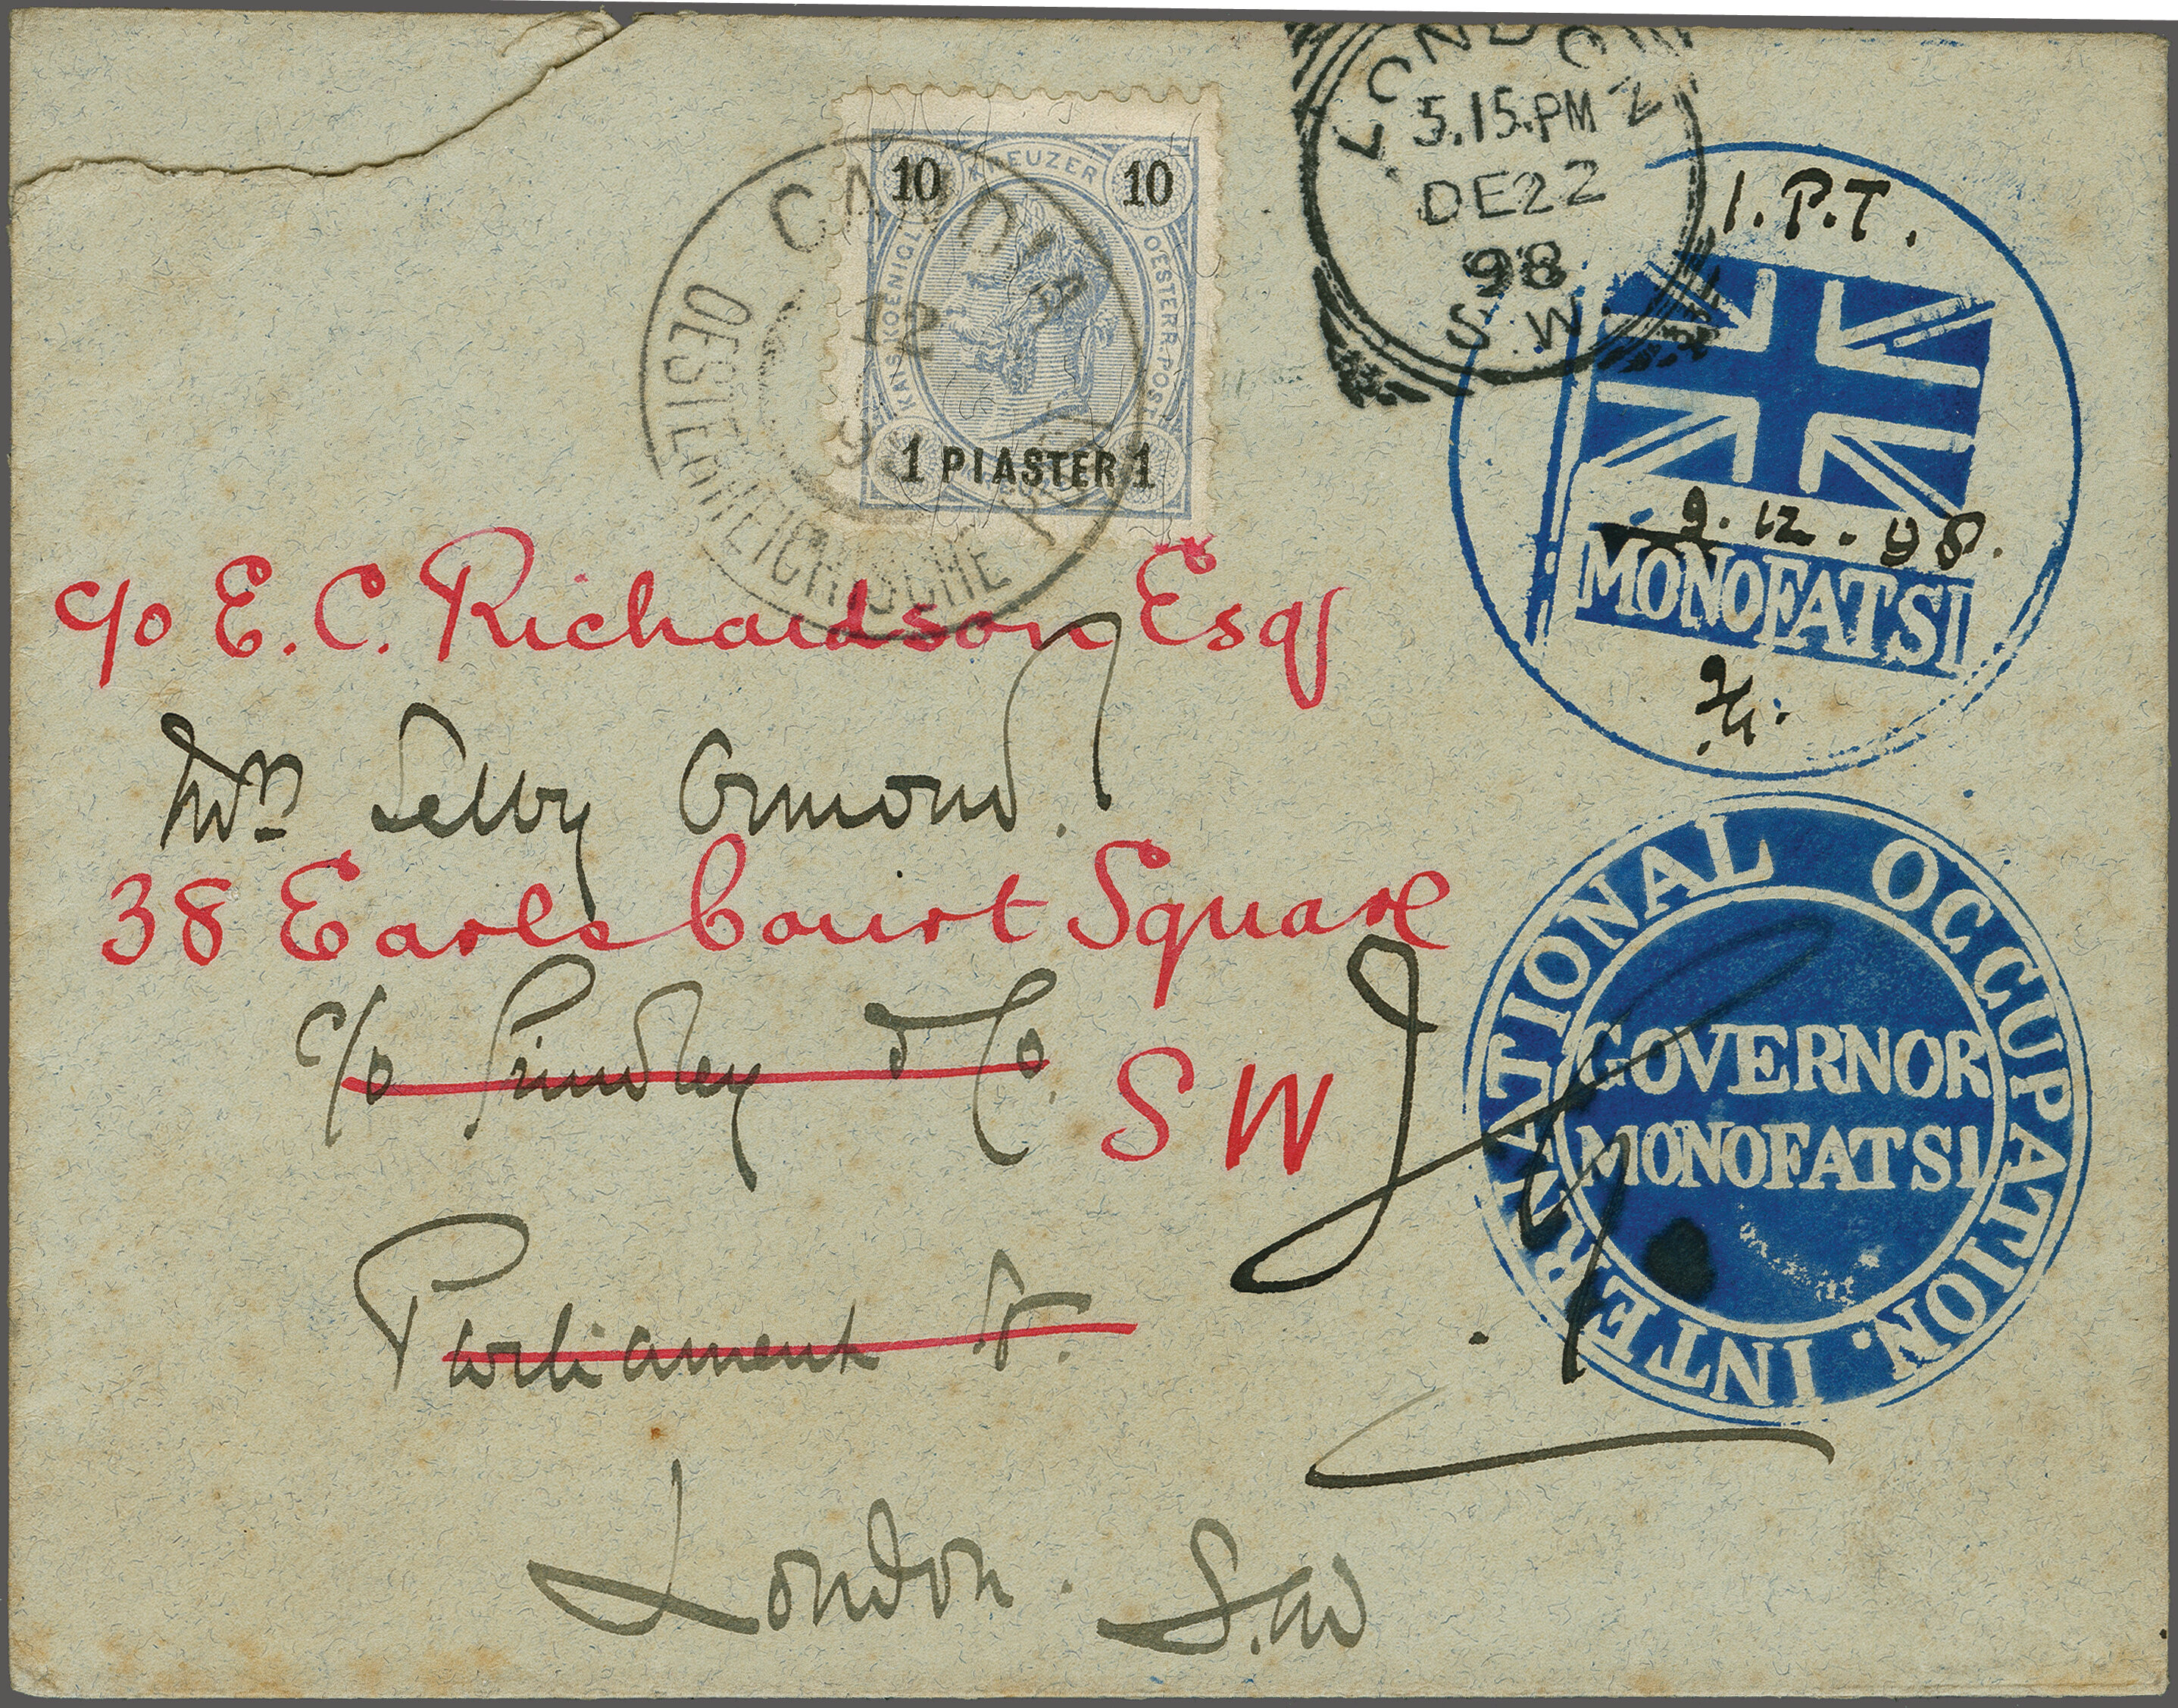 LONDON
5.15.PM
DE22
98
S.W
I.P.T.
10 KREUZER 10
KAIS. KOENIGL. OESTERR. POST
1 PIASTER 1
OESTERREICHISCHE POST
12
9.12.98.
MONOFATSI
c/o E. C. Richardson Esqr
Mrs Selby Ormond.
38 Earls Court Square
c/o Grindley & Co.
S W
Parliament St.
London. S.W
INTERNATIONAL OCCUPATION.
GOVERNOR
MONOFATSI